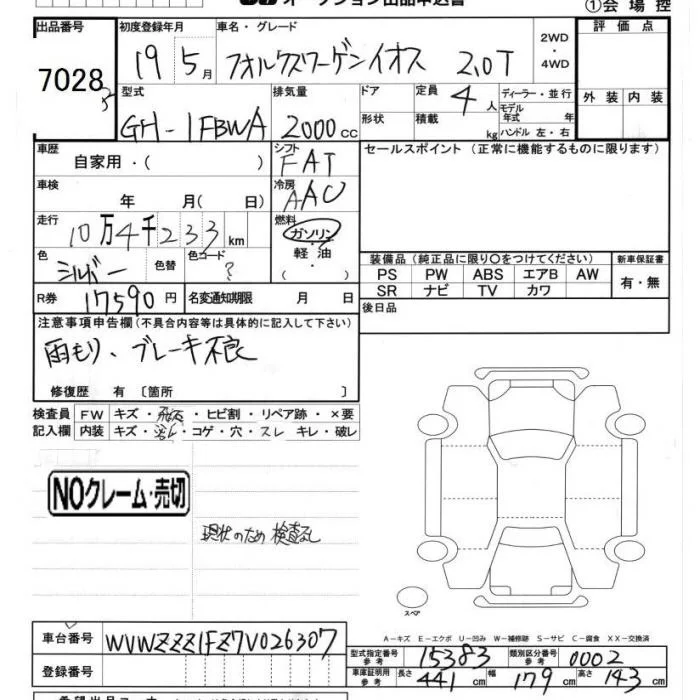 オークション出品申込書
①会場控
出品番号 初度登録年月 車名・グレード 評価点
7028 19 5月 フォルクスワーゲンイオス 2.0T 2WD・4WD
外装 内装
型式 排気量 ドア 定員 ディーラー・並行
GH-1FBWA 2000cc 4人 モデル年式 年
形状 積載 kg ハンドル 左・右
車歴 自家用・( ) シフト FAT
セールスポイント(正常に機能するものに限ります)
車検 年 月(日) 冷房 AAC
走行 10万4千233km 燃料 ガソリン・軽油・( )
色 シルバー 色替 色コード ?
装備品(純正品に限り○をつけてください) 新車保証書
PS PW ABS エアB AW 有・無
SR ナビ TV カワ
R券 17590円 名変通知期限 月 日
後日品
注意事項申告欄(不具合内容等は具体的に記入して下さい)
雨もり、ブレーキ不良
修復歴 有〔箇所 〕
検査員 FW キズ・飛石・ヒビ割・リペア跡・×要
記入欄 内装 キズ・汚レ・コゲ・穴・スレ キレ・破レ
NOクレーム・売切
現状のため 検査なし
スペア
A-キズ E-エクボ U-凹み W-補修跡 S-サビ C-腐食 XX-交換済
車台番号 WVWZZZ1FZ7V026307
型式指定番号 参考 15383 類別区分番号 参考 0002
登録番号
車庫証明用 参考 長さ 441cm 幅 179cm 高さ 143cm